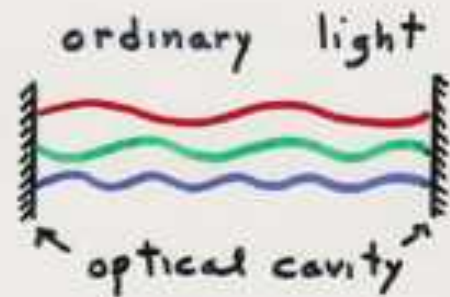 ordinary light
optical cavity